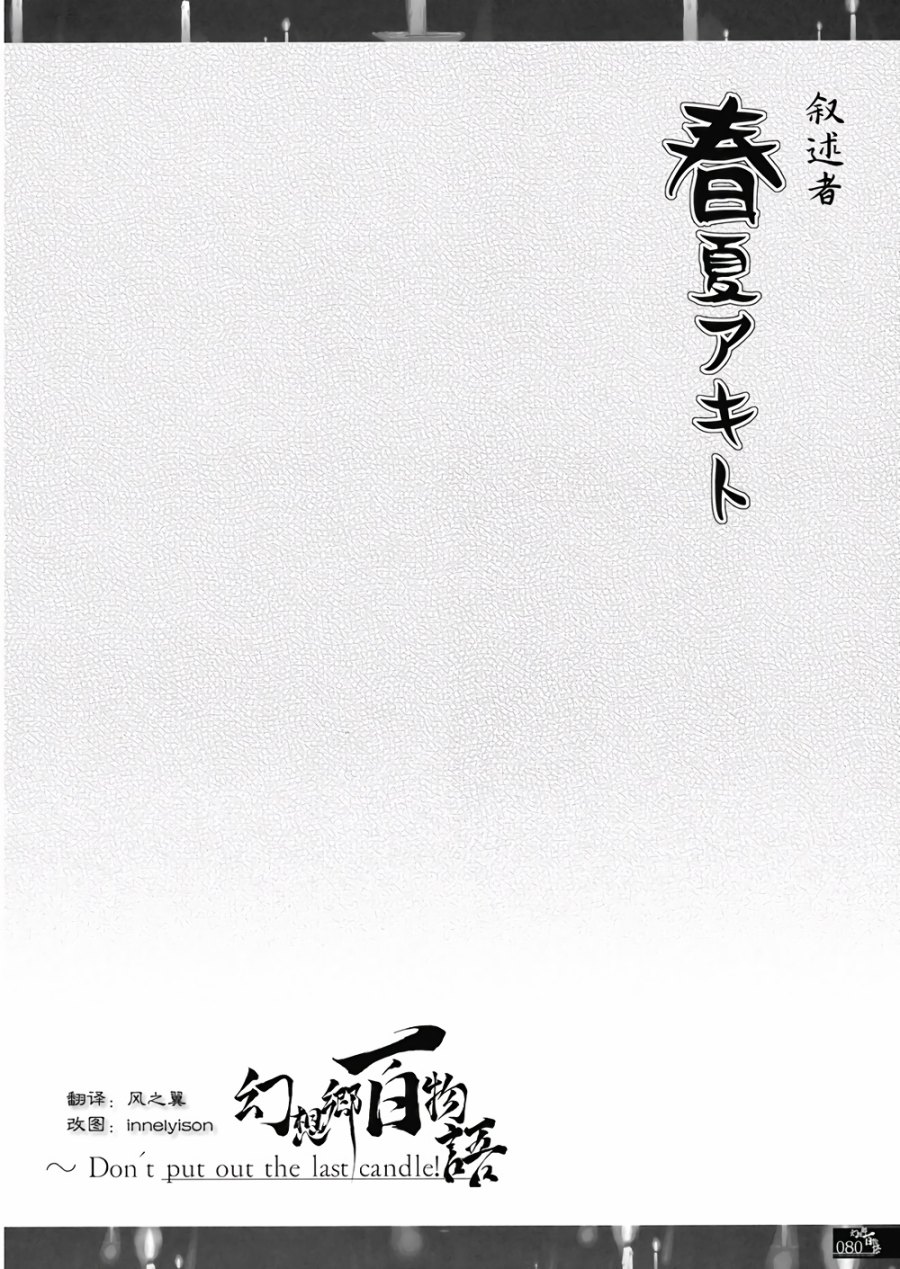 叙述者
春夏アキト
翻译：风之翼
改图：innelyison
幻想郷百物語
～ Don´t put out the last candle!
080
幻想郷百物語